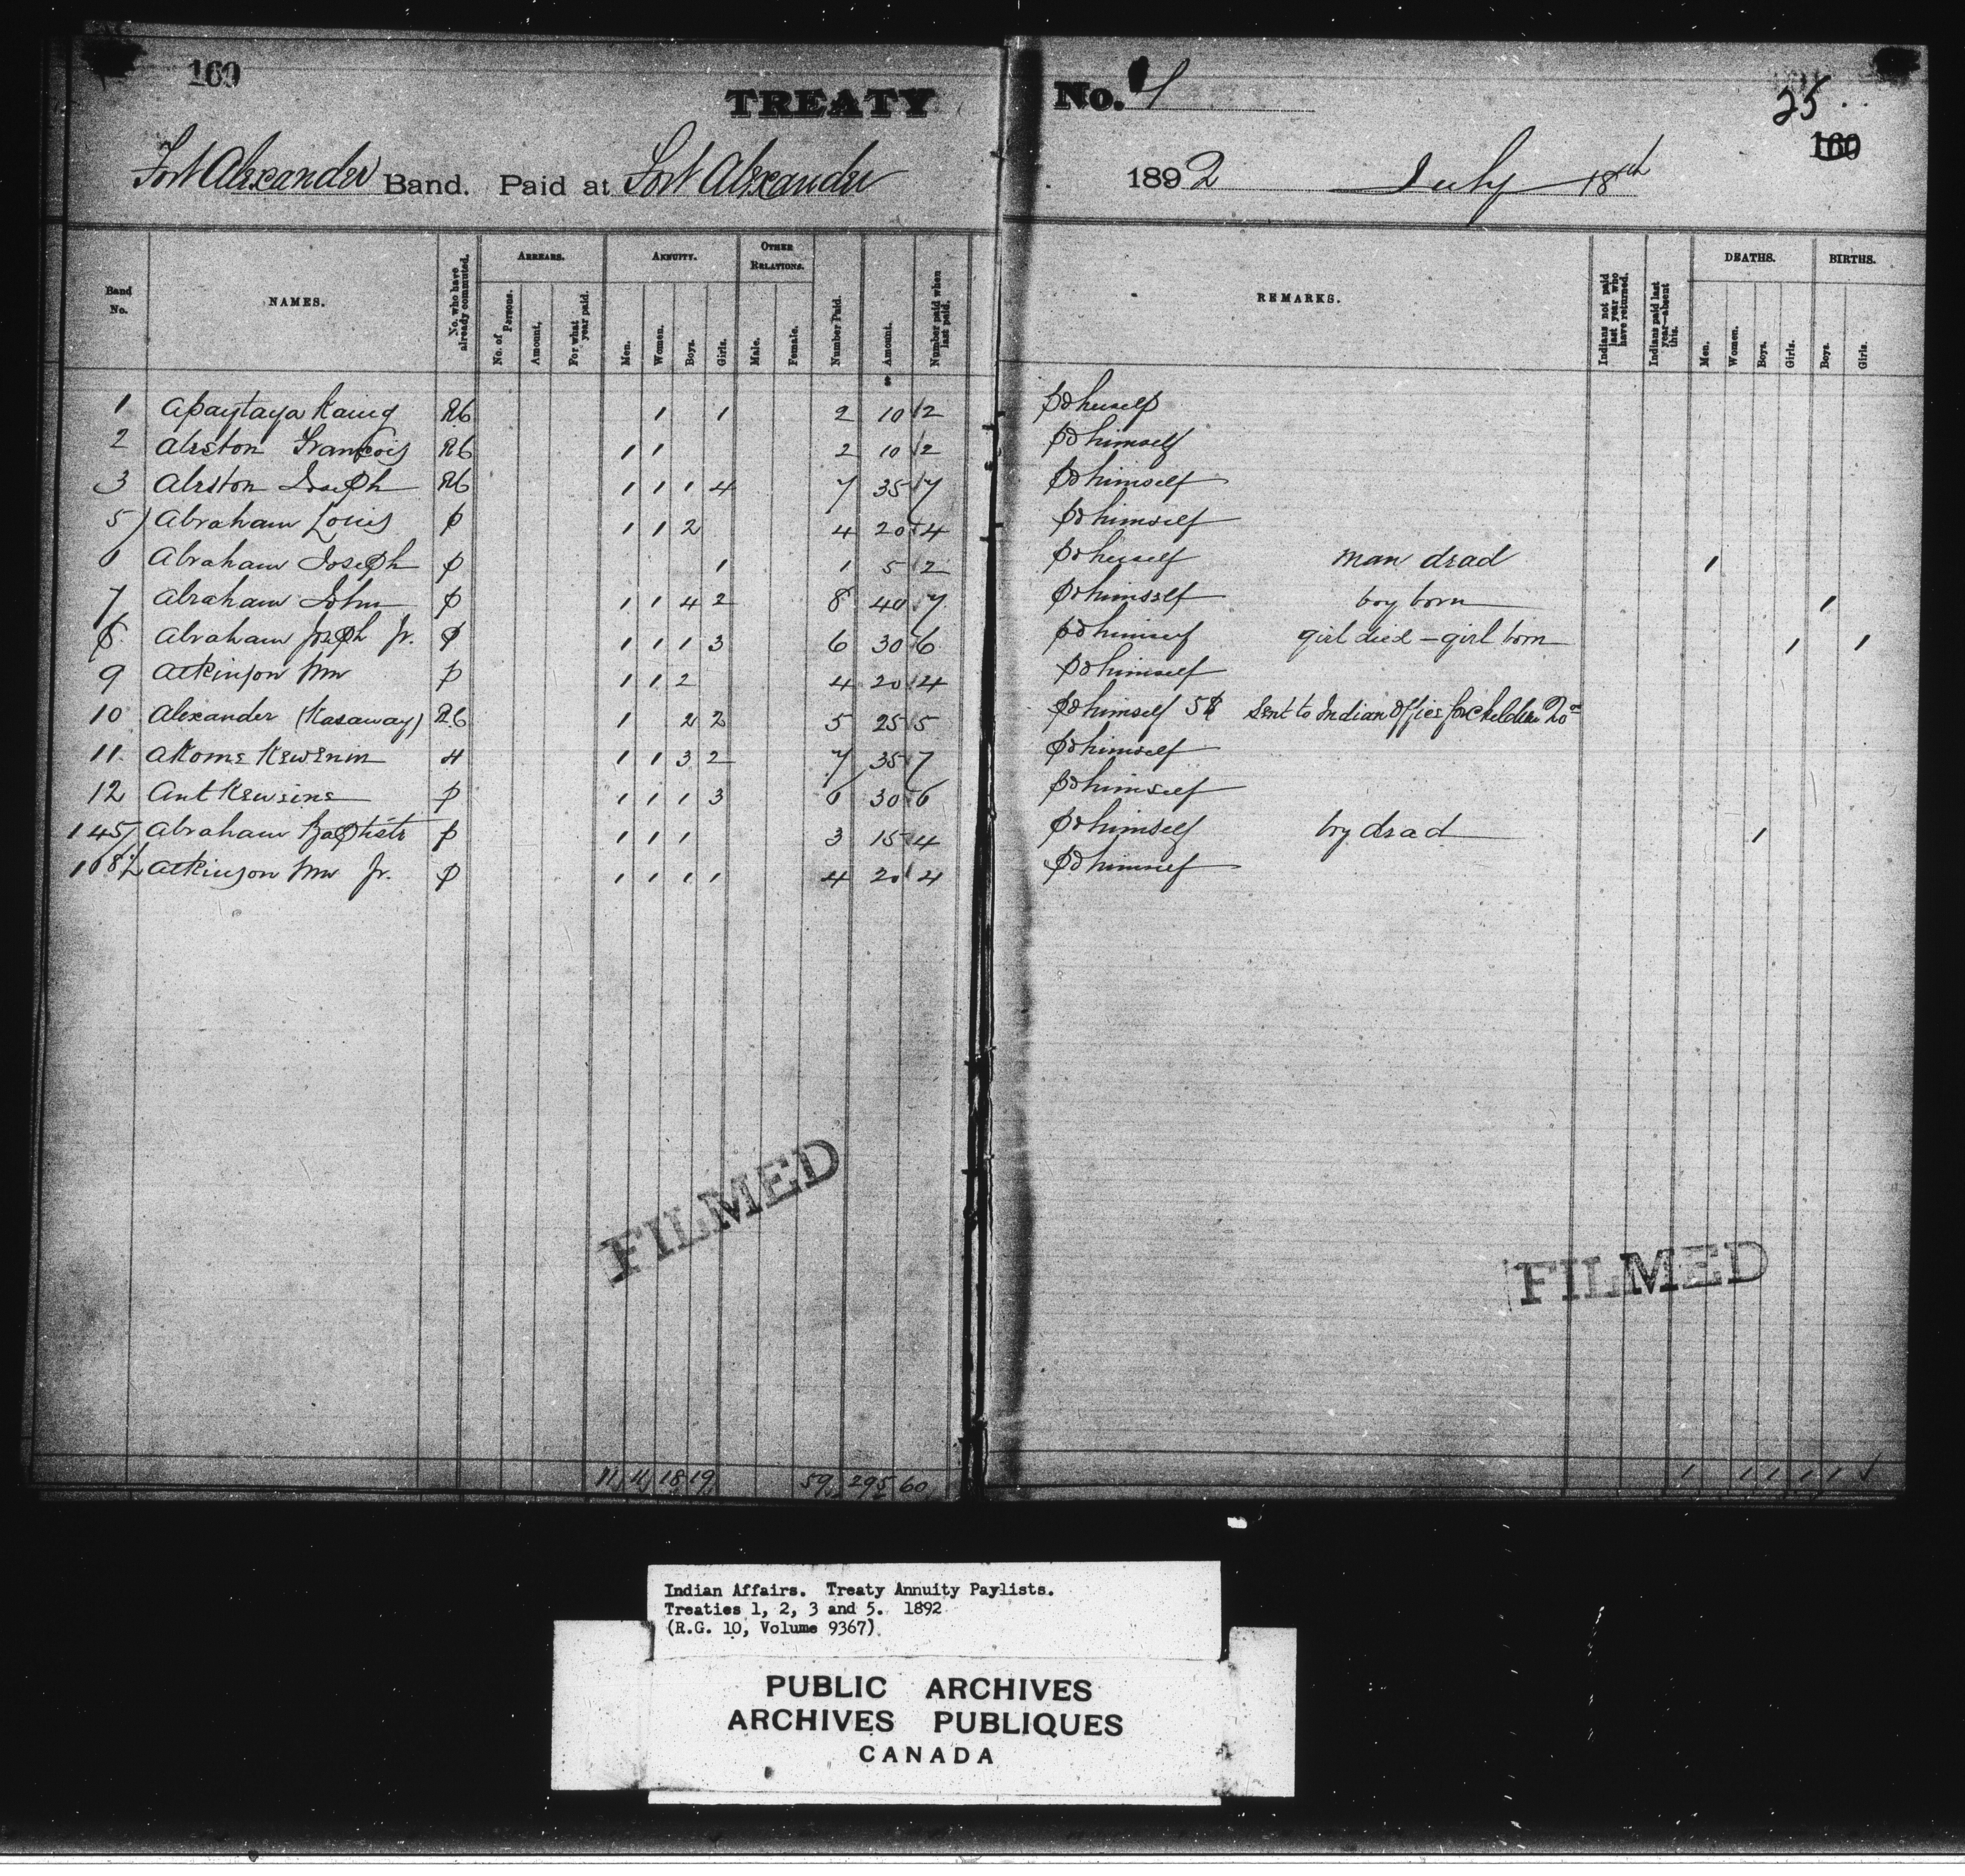 160
TREATY No. 1
25
160
Fort Alexander Band. Paid at Fort Alexander 1892 July 18th
Band No. NAMES. No. who have already commuted. ARREARS. No. of Persons. Amount. For what year paid. ANNUITY. Men. Women. Boys. Girls. OTHER RELATIONS. Male. Female. Number Paid. Amount. Number paid when last paid. REMARKS. Indians not paid last year who have returned. Indians paid last year—absent this. DEATHS. Men. Women. Boys. Girls. BIRTHS. Boys. Girls.
$
1 Apaytaya Kauig R6 1 1 2 10 2 pd herself
2 Aleston François R6 1 1 2 10 2 pd himself
3 Aleston Joseph R6 1 1 1 4 7 35 7 pd himself
5 Abraham Louis p 1 1 2 4 20 4 pd himself
6 Abraham Joseph p 1 1 5 2 pd herself man dead 1
7 Abraham John p 1 1 4 2 8 40 7 pd himself boy born 1
8 Abraham Joseph Jr. p 1 1 1 3 6 30 6 pd himself girl died - girl born 1 1
9 Atkinson Wm p 1 1 2 4 20 4 pd himself
10 Alexander (Kasaway) R6 1 2 2 5 25 5 pd himself 5$ Sent to Indian Office for Children 20
11 Akome Kewenin H 1 1 3 2 7 35 7 pd himself
12 Ant Kewsins p 1 1 1 3 6 30 6 pd himself
145 Abraham Baptiste p 1 1 1 3 15 4 pd himself boy dead 1
Atkinson Wm Jr. p 1 1 1 1 4 20 4 pd himself
FILMED
FILMED
11 11 18 19 59 295 60 1 1 1 1 1 1
Indian Affairs. Treaty Annuity Paylists.
Treaties 1, 2, 3 and 5. 1892
(R.G. 10, Volume 9367)
PUBLIC ARCHIVES
ARCHIVES PUBLIQUES
CANADA